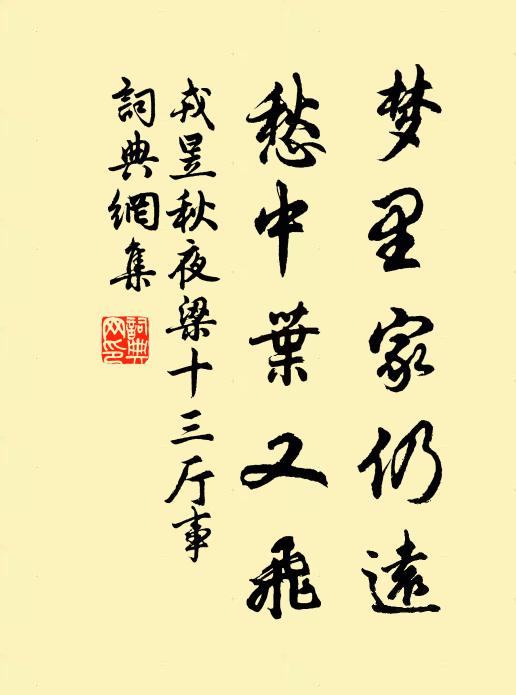 梦里家仍遠
愁中葉又飛
戎昱秋夜梁十三厅事
詞典網集
詞典网印